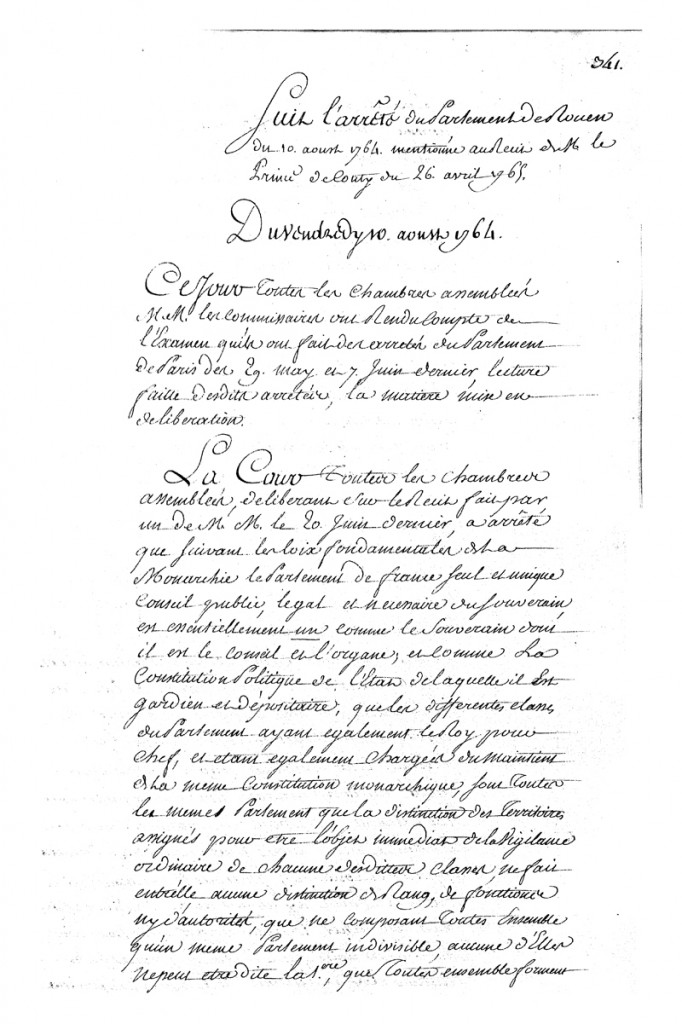 341.
Suit l'arrêté du Parlement de Rouen
du 10. aoust 1764. mentionné au Recit de M. le
Prince de Conty du 26. avril 1765.
Du vendredy 10. aoust 1764.
Ce Jour Toutes les Chambres assemblées
M. M. les Commissaires ont Rendu Compte de
l'Examen qu'ils ont fait des arretés du Parlement
de Paris des 29. may et 7. Juin dernier, lecture
faitte desdits arretés, la matiere mise en
deliberation.
La Cour Toutes les Chambres
assemblées, deliberant sur le Recit fait par
un de M. M. le 20 Juin dernier, a arrêté
que suivant les loix fondamentales de La
Monarchie le Parlement de france seul et unique
Conseil public, legal et necessaire du Souverain,
est essentiellement un comme le Souverain dont
il est le conseil et l'organe; et comme La
Constitution Politique de l'Etat de laquelle il Est
gardien et dépositaire, que les differentes classes
du Parlement ayant egalement le Roy pour
chef, et etant egalement chargées du maintient
de La meme Constitution monarchique, sont Toutes
le meme Parlement que la distinction des Territoires
assignés pour etre l'objet immediat de la Vigilance
ordinaire de chacune desdittes classes ne fait
entr'elle aucune distinction de Rang, de fonctions
ny d'autorités, que ne composant Toutes Ensemble
qu'un meme Parlement indivisible, aucune d'Elles
ne peut etre dite la 1.ere, que Toutes ensemble forment